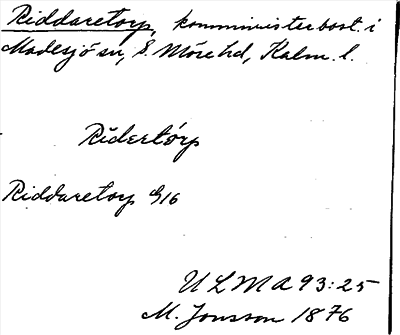 Riddaretorp, komministerbost. i
Madesjö sn, S. Möre hd, Kalm. l.
Ridertórp
Riddaretorp G16
U L M A 93:25
M. Jonsson 1876